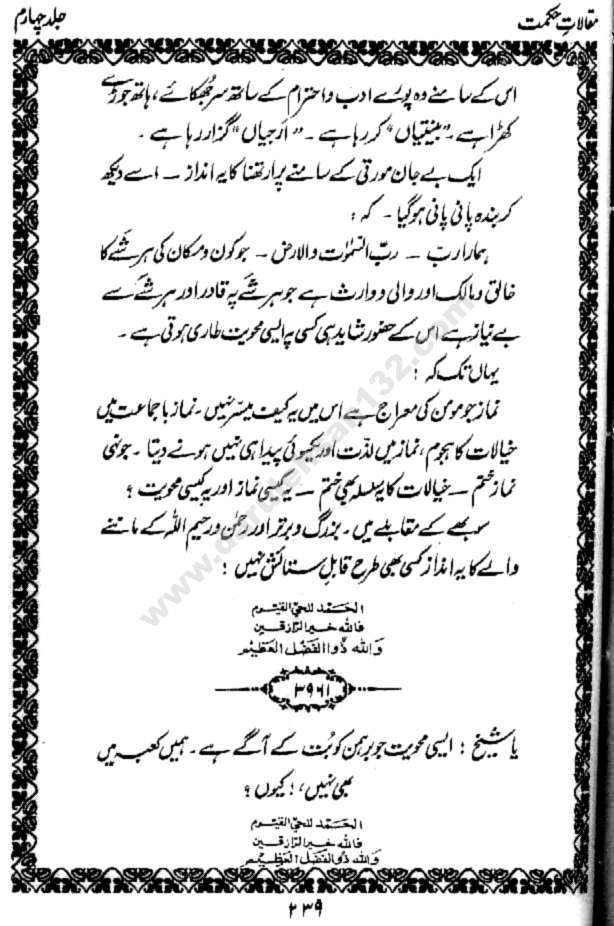 مقالاتِ حکمت
جلد چہارم
اس کے سامنے وہ پورے ادب و احترام کے ساتھ سر جھکائے، ہاتھ جوڑے
کھڑا ہے۔ "بینتیاں" کر رہا ہے ۔ "اَرجیاں" گزار رہا ہے ۔
ایک بے جان مورتی کے سامنے پرارتھنا کا یہ انداز — اسے دیکھ
کر بندہ پانی پانی ہو گیا ۔ کہ :
ہمارا رب — ربّ السمٰوٰت والارض — جو کون و مکان کی ہر شئے کا
خالق و مالک اور والی و وارث ہے جو ہر شئے پہ قادر اور ہر شئے سے
بے نیاز ہے اس کے حضور شاید ہی کسی پہ ایسی محویت طاری ہوتی ہے ۔
یہاں تک کہ :
نماز جو مومن کی معراج ہے اس میں یہ کیف میسّر نہیں۔ نماز با جماعت میں
خیالات کا ہجوم، نماز میں لذّت اور یکسوئی پیدا ہی نہیں ہونے دیتا ۔ جونہی
نماز ختم — خیالات کا یہ سلسلہ بھی ختم — یہ کیسی نماز اور یہ کیسی محویت ؟
سو بھے کے مقابلے میں ۔ بزرگ و برتر اور رحمٰن و رحیم اللہ کے ماننے
والے کا یہ انداز کسی بھی طرح قابلِ ستائش نہیں :
الحمد للحی القیوم
فاللہ خیر الرازقین
واللہ ذوالفضل العظیم
۳۹۶۱
یا شیخ : ایسی محویت جو برہمن کو بُت کے آگے ہے ۔ ہمیں کعبہ میں
بھی نہیں، ! کیوں ؟
الحمد للحی القیوم
فاللہ خیر الرازقین
واللہ ذوالفضل العظیم
۲۳۹